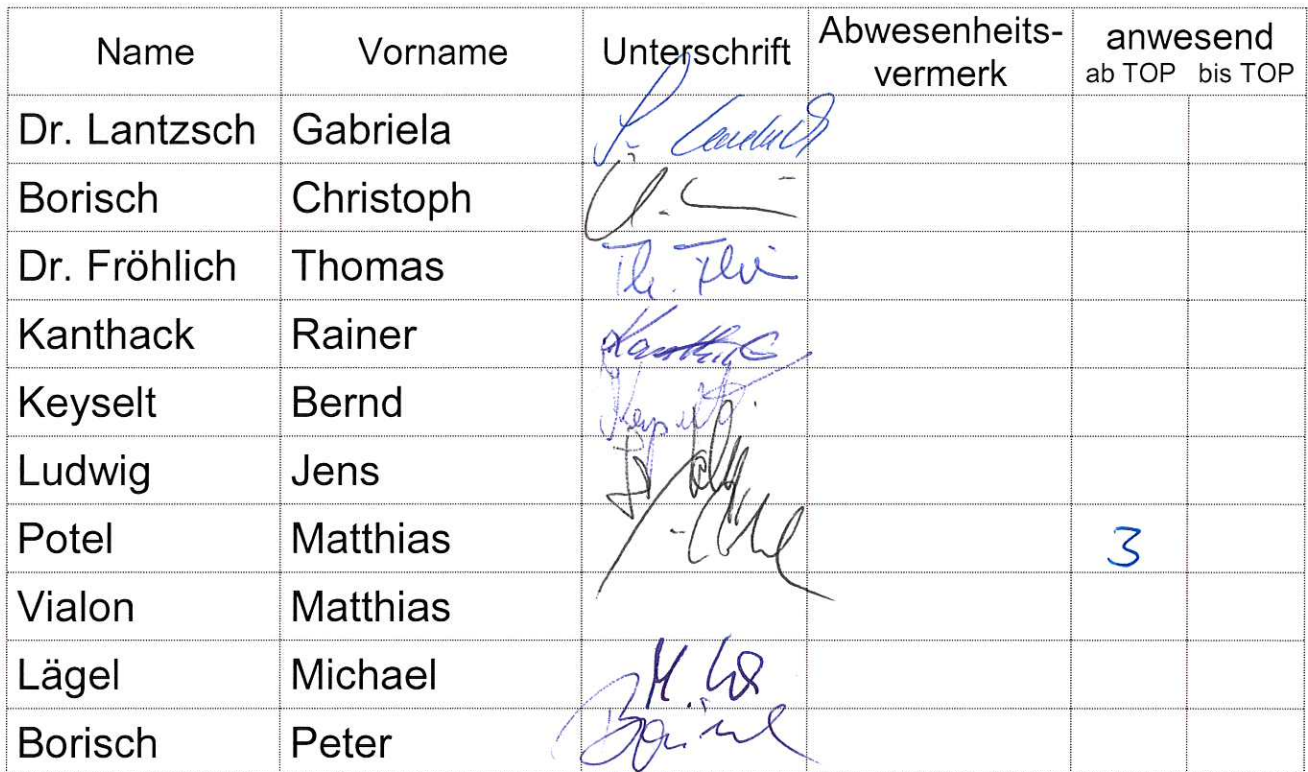 Name Vorname Unterschrift Abwesenheits-vermerk anwesend
ab TOP bis TOP
Dr. Lantzsch Gabriela
Borisch Christoph
Dr. Fröhlich Thomas
Kanthack Rainer
Keyselt Bernd
Ludwig Jens
Potel Matthias 3
Vialon Matthias
Lägel Michael
Borisch Peter